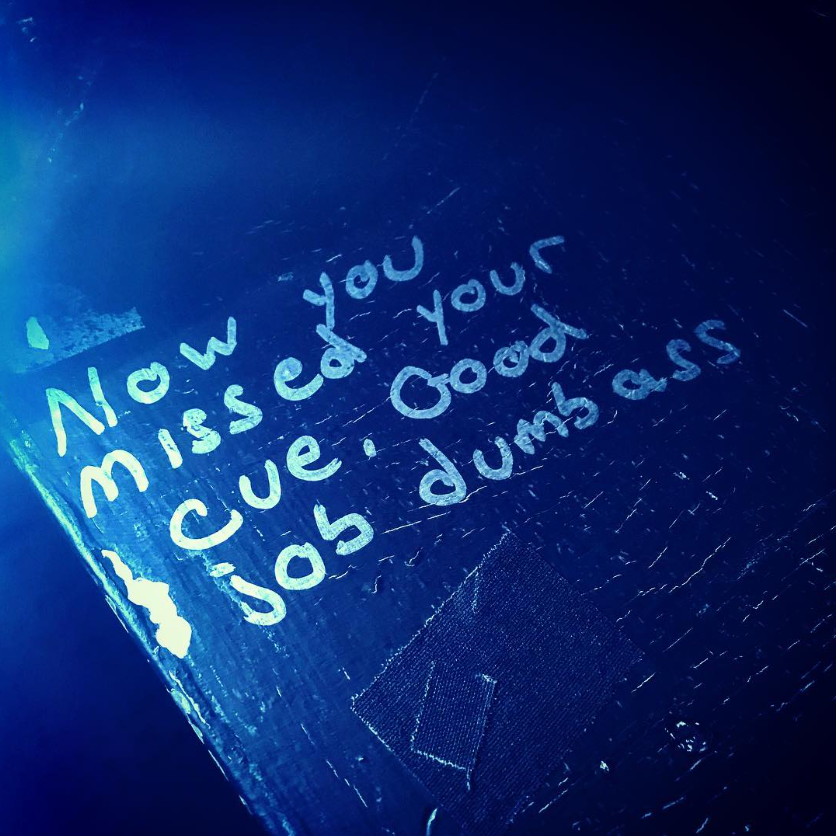 Now you
missed your
cue. Good
job dumb ass